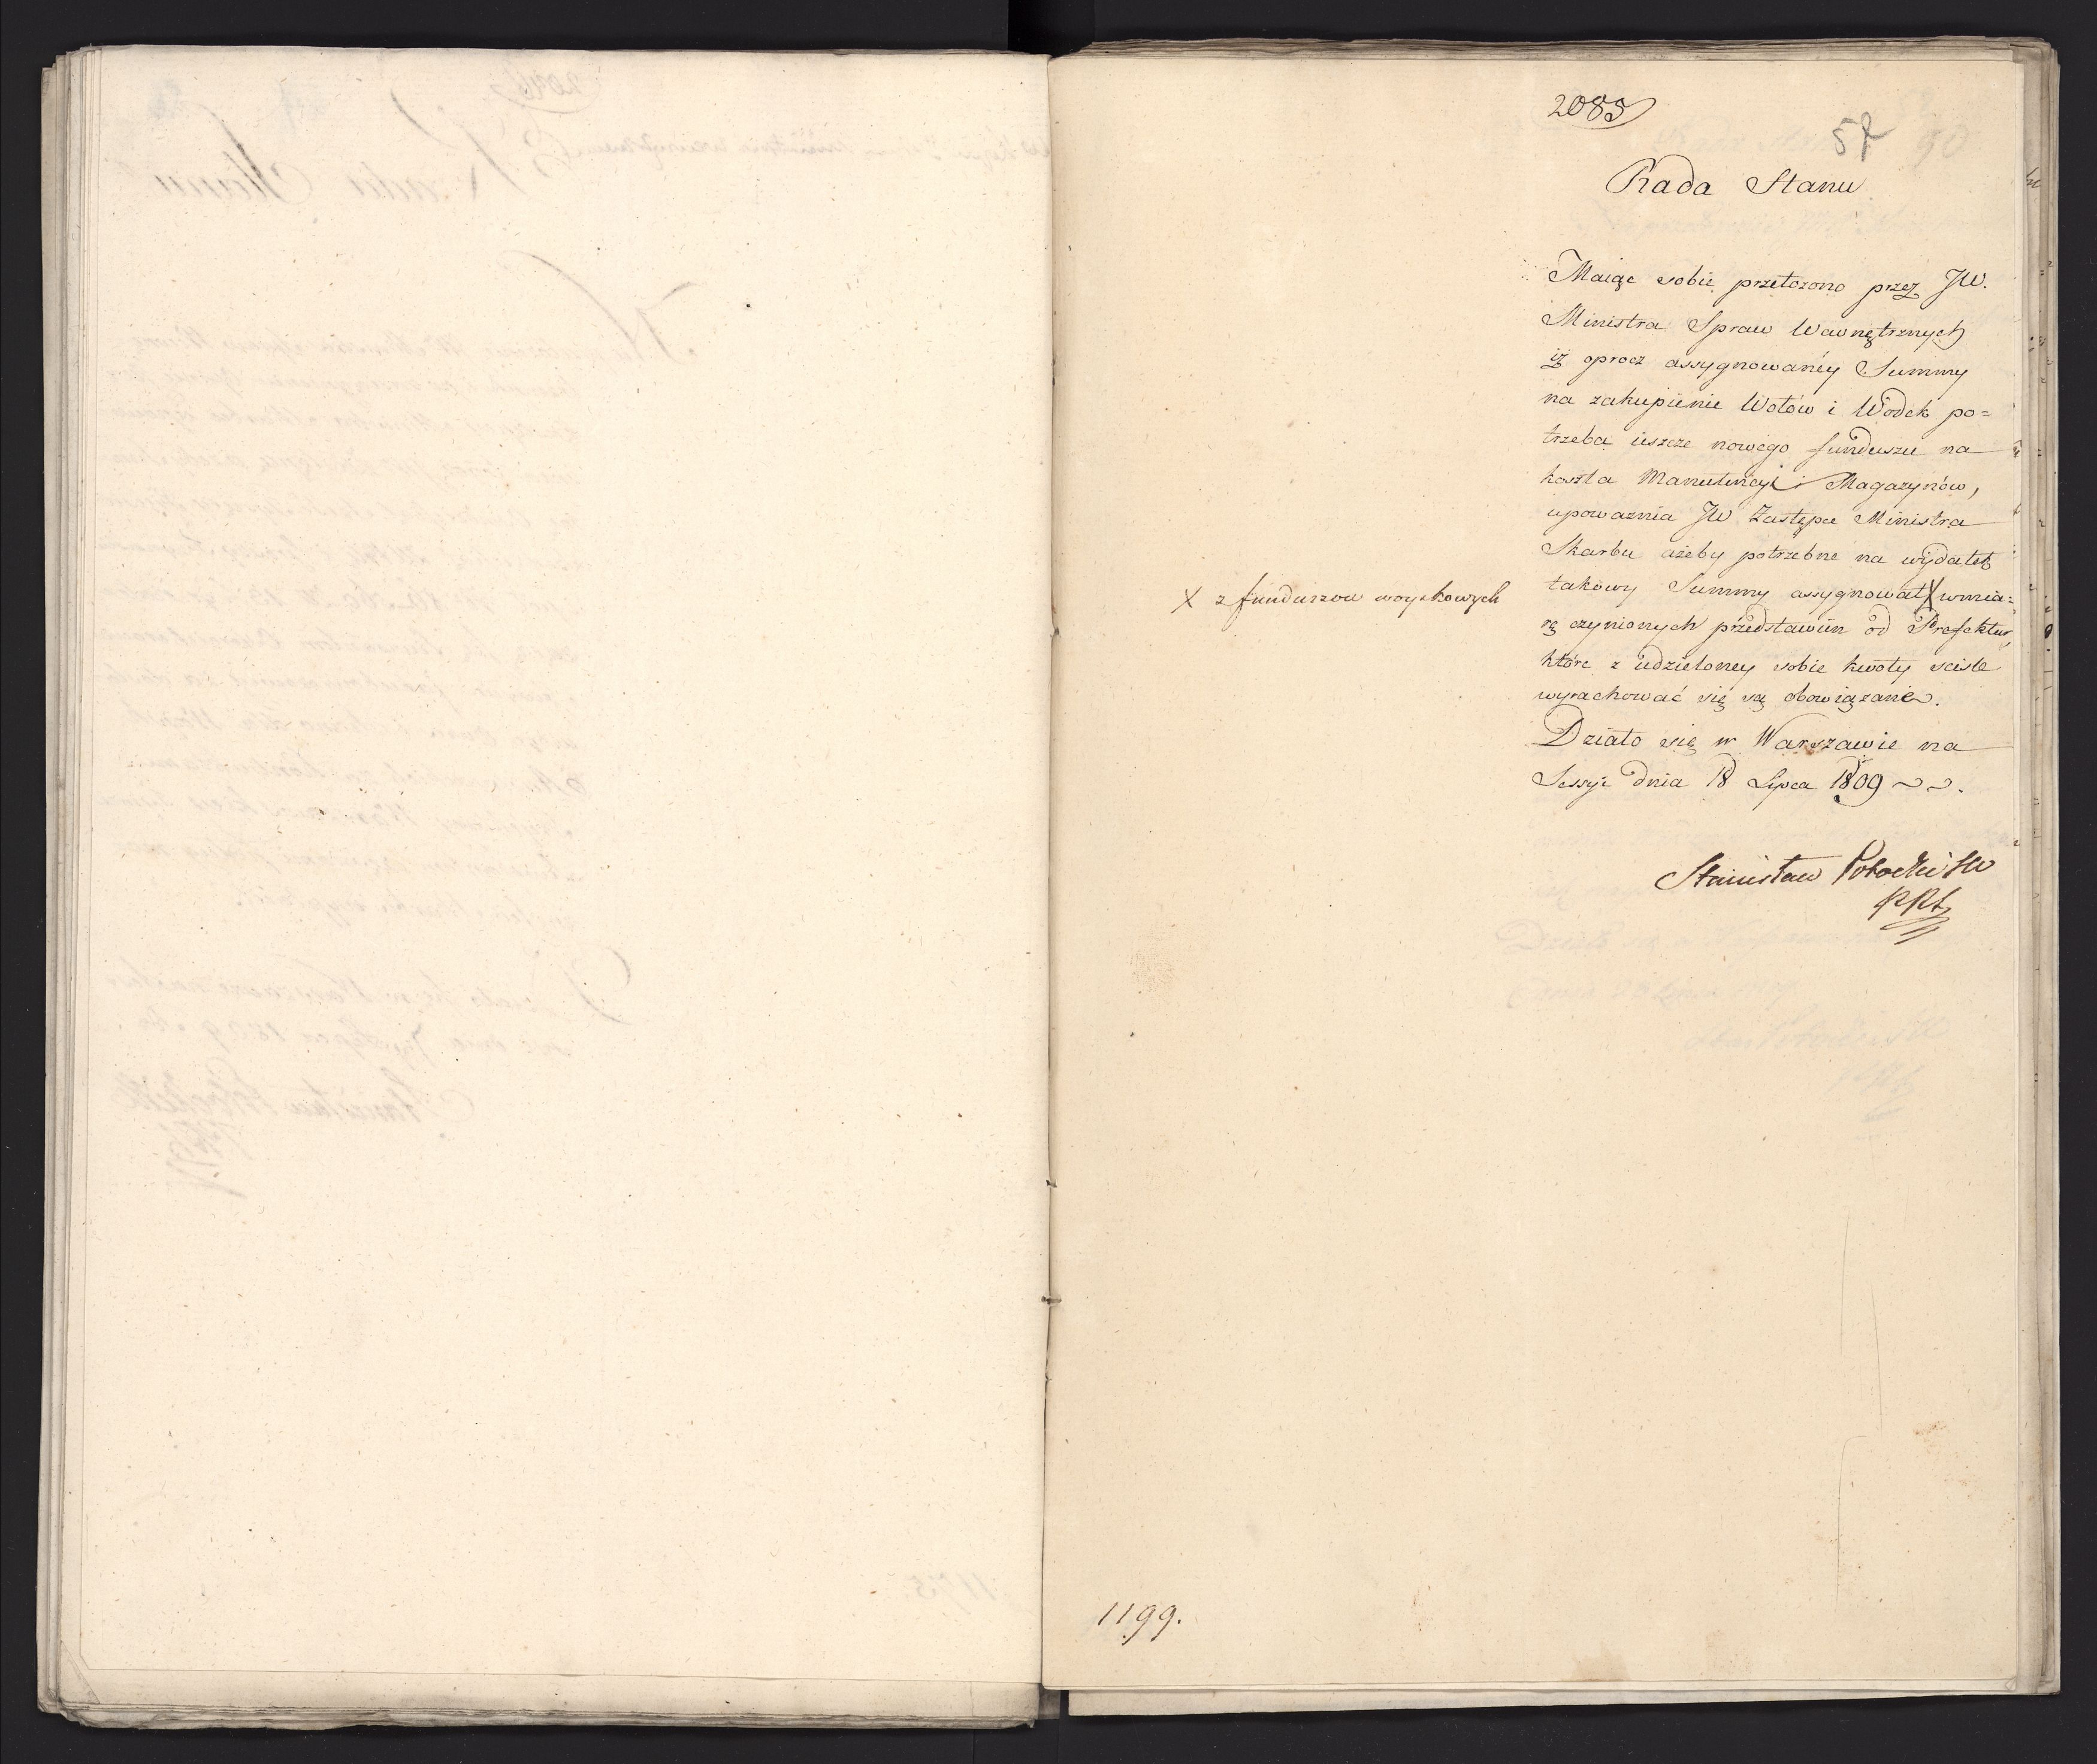 2083
57
Rada Stanu
Maiąc sobie przełożono przez JW.
Ministra Spraw Wewnętrznych
iż oprocz assygnowanéy Summy
na zakupienie Wołów i Wódek po=
trzeba ieszcze nowego funduszu na
koszta Manutencyi Magazynów,
upoważnia JW Zastępcę Ministra
Skarbu ażeby potrzebne na wydatek
takowy Summy assygnował X w mia=
X z funduszow woyskowych
rę czynionych przedstawien od Prefektur,
które z udzieloney sobie kwoty sciśle
wyrachować się są obowiązane.
Działo się w Warszawie na
Sessyi dnia 18 Lipca 1809
Stanisław Potocki SW
PRS
1199.